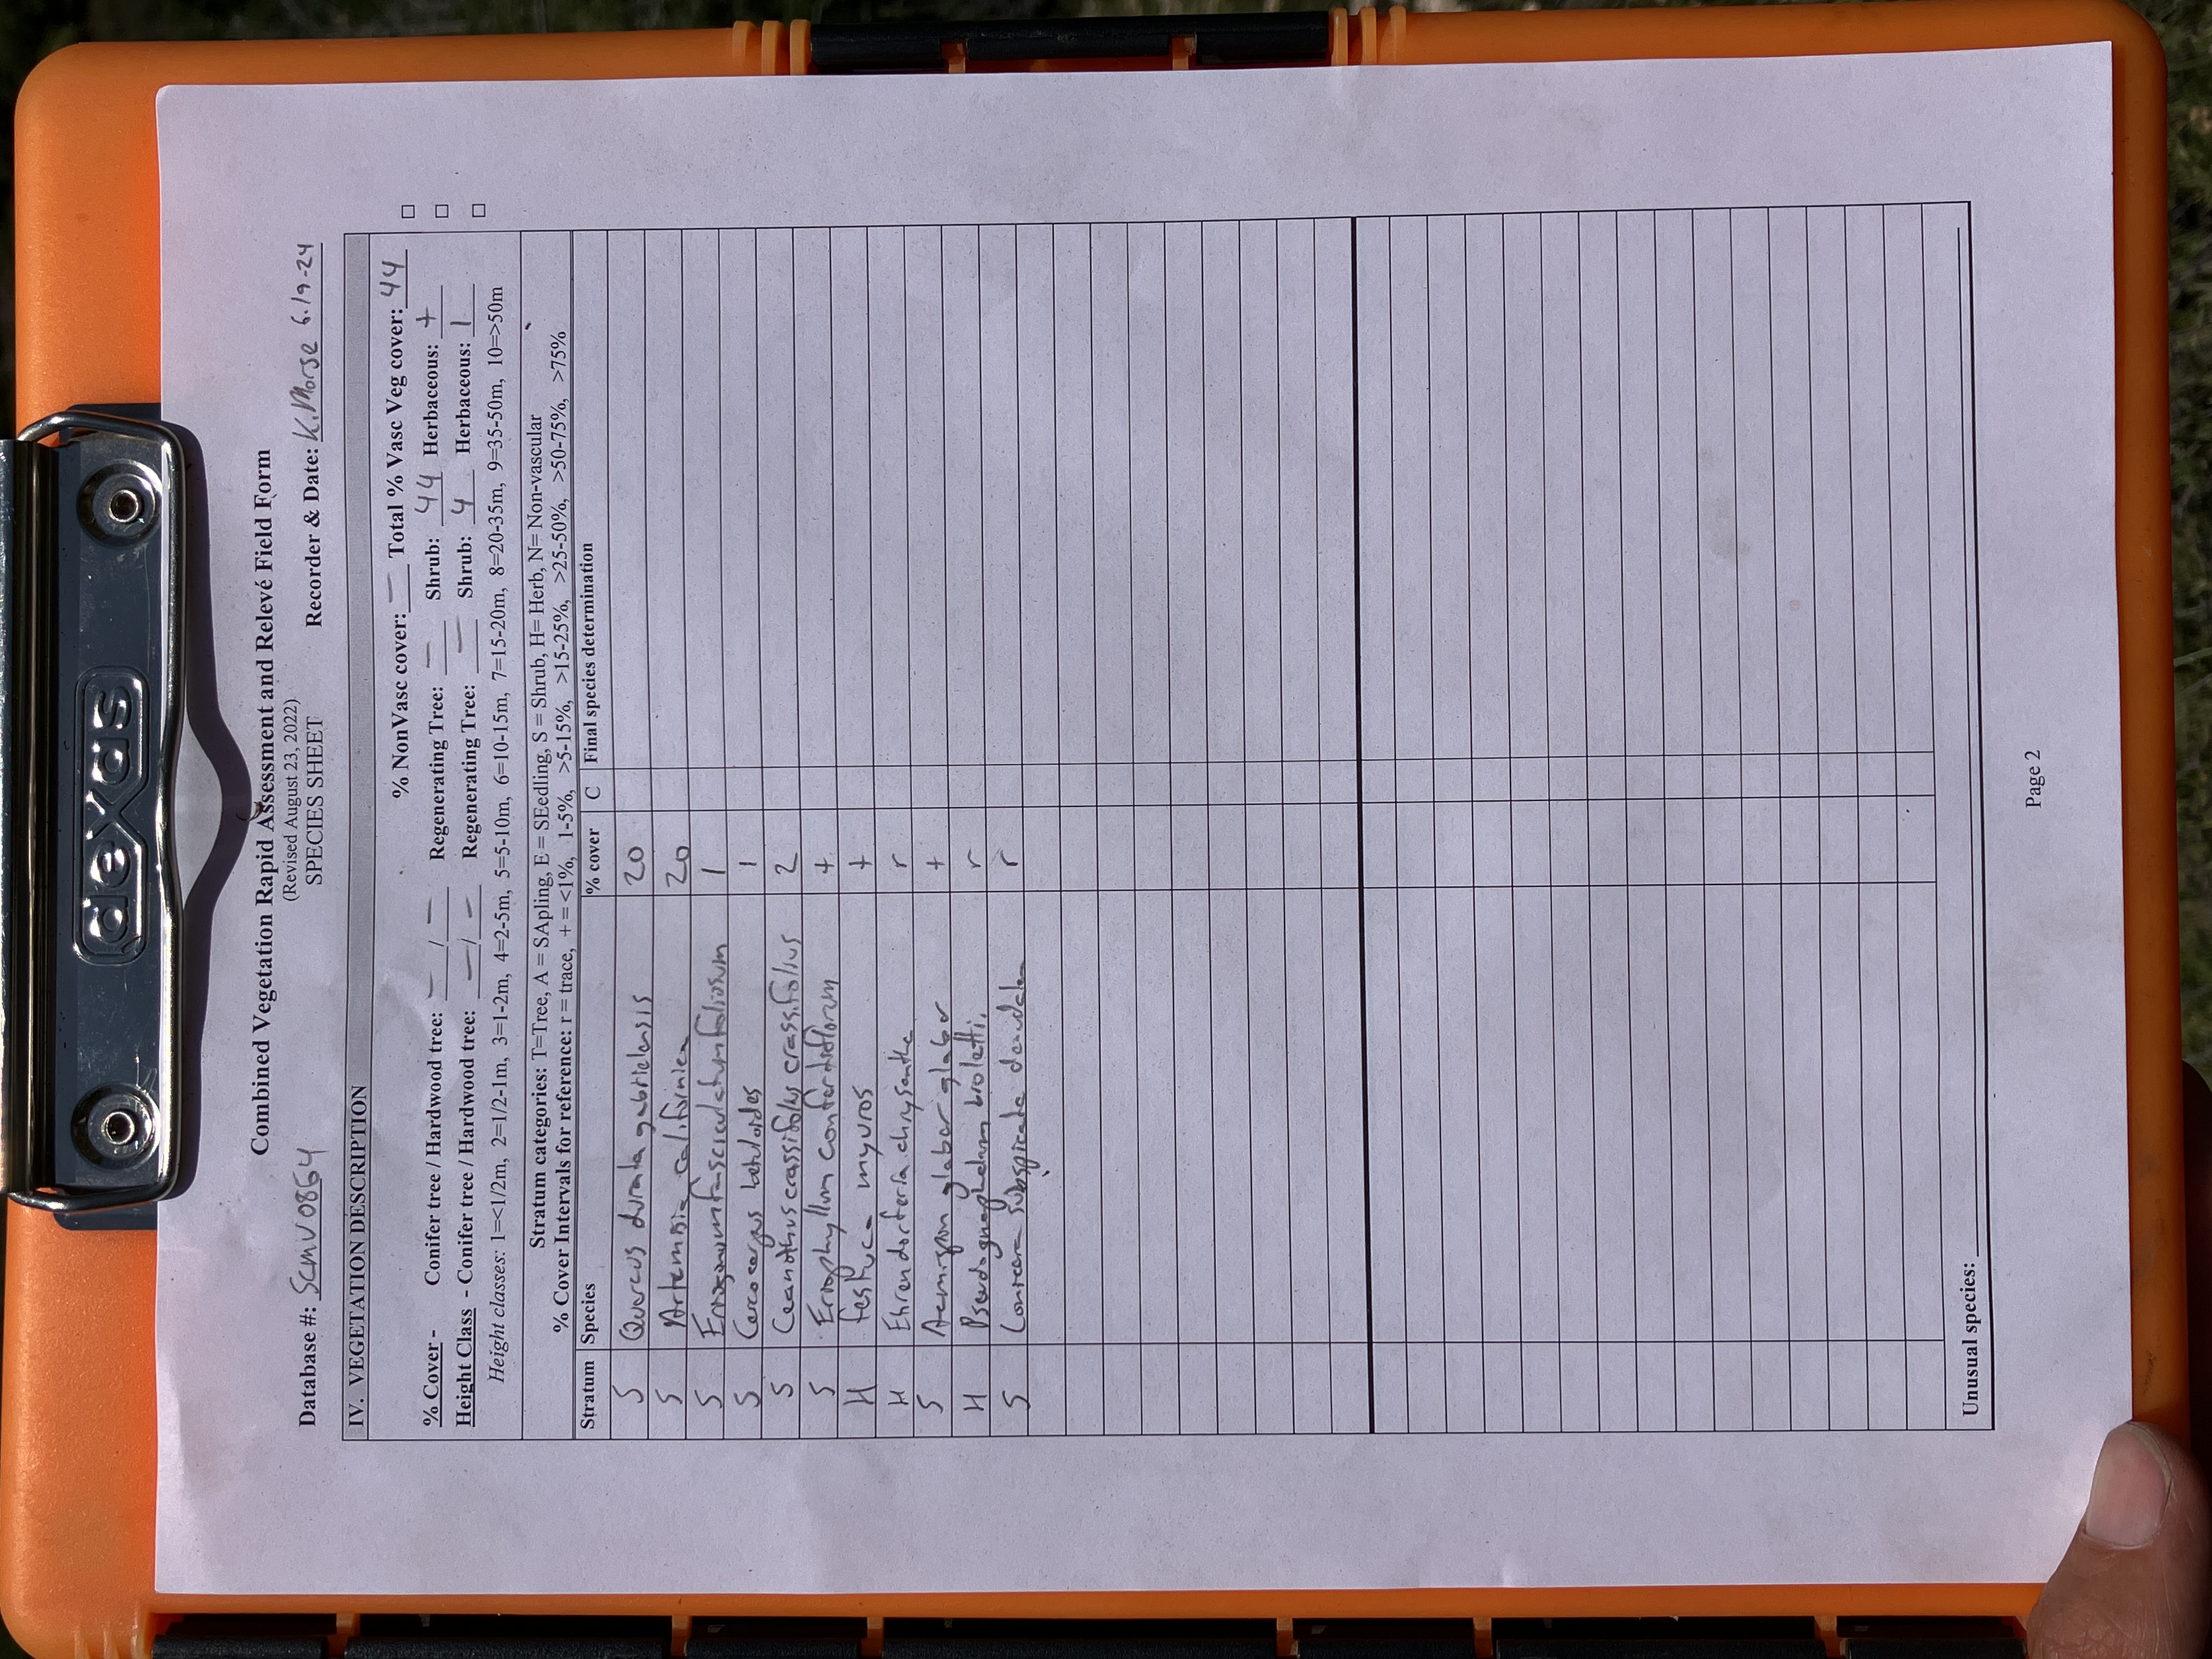 dexas
Combined Vegetation Rapid Assessment and Relevé Field Form
(Revised August 23, 2022)
SPECIES SHEET
Database #: SCMV0864 Recorder & Date: K.Morse 6.19-24
IV. VEGETATION DESCRIPTION
% NonVasc cover: — Total % Vasc Veg cover: 44 □
% Cover - Conifer tree / Hardwood tree: — / — Regenerating Tree: — Shrub: 44 Herbaceous: + □
Height Class - Conifer tree / Hardwood tree: — / — Regenerating Tree: — Shrub: 4 Herbaceous: 1 □
Height classes: 1=<1/2m, 2=1/2-1m, 3=1-2m, 4=2-5m, 5=5-10m, 6=10-15m, 7=15-20m, 8=20-35m, 9=35-50m, 10=>50m
Stratum categories: T=Tree, A = SApling, E = SEedling, S = Shrub, H= Herb, N= Non-vascular
% Cover Intervals for reference: r = trace, + = <1%, 1-5%, >5-15%, >15-25%, >25-50%, >50-75%, >75%
Stratum Species % cover C Final species determination
S Quercus durata gabrielensis 20
S Artemisia californica 20
S Eriogonum fasciculatum foliosum 1
S Cercocarpus betuloides 1
S Ceanothus crassifolius crassifolius 2
S Eriophyllum confertiflorum +
H Festuca myuros +
H Ehrendorferia chrysantha r
S Acmispon glaber glaber +
H Pseudognaphalium bioletti. r
S Lonicera subspicata denudata r
Unusual species:
Page 2